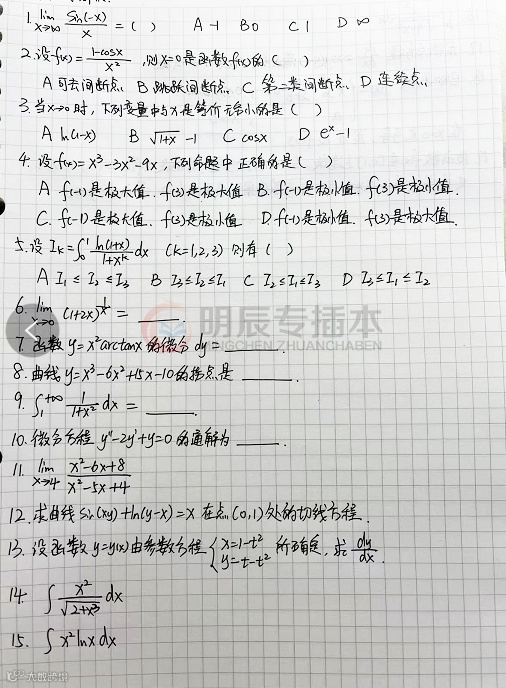 1. lim x→∞ sin(-x)/x = ( )  A -1  B 0  C 1  D ∞
2. 设f(x)= (1-cosx)/x² ,则x=0是函数f(x)的( )
A 可去间断点、B 跳跃间断点、C 第二类间断点、D 连续点、
3. 当x→0时,下列变量中与x是等价无穷小的是( )
A ln(1-x)  B √(1+x) -1  C cosx  D e^x-1
4. 设f(x)=x³-3x²-9x,下列命题中正确的是( )
A f(-1)是极大值 f(3)是极大值 B. f(-1)是极小值. f(3)是极小值.
C. f(-1)是极大值. f(3)是极小值. D. f(-1)是极小值. f(3)是极大值.
5. 设 I_k=∫₀¹ ln(1+x)/(1+x^k) dx (k=1,2,3) 则有( )
A I₁≤I₂≤I₃  B I₃≤I₂≤I₁  C I₂≤I₁≤I₃  D I₃≤I₁≤I₂
6. lim x→0 (1+2x)^(1/x) = ____.
明辰专插本
7. 函数y=x²arctanx的微分dy=____.
MINGCHEN ZHUANCHABEN
8. 曲线y=x³-6x²+15x-10的拐点是____.
9. ∫₁^(+∞) 1/(1+x²) dx = ____.
10. 微分方程 y''-2y'+y=0 的通解为____.
11. lim x→4 (x²-6x+8)/(x²-5x+4)
12. 求曲线sin(xy)+ln(y-x)=x在点(0,1)处的切线方程.
13. 设函数y=y(x)由参数方程{x=1-t² y=t-t² 所确定,求 dy/dx.
14. ∫ x²/√(2+x³) dx
15. ∫ x² lnx dx